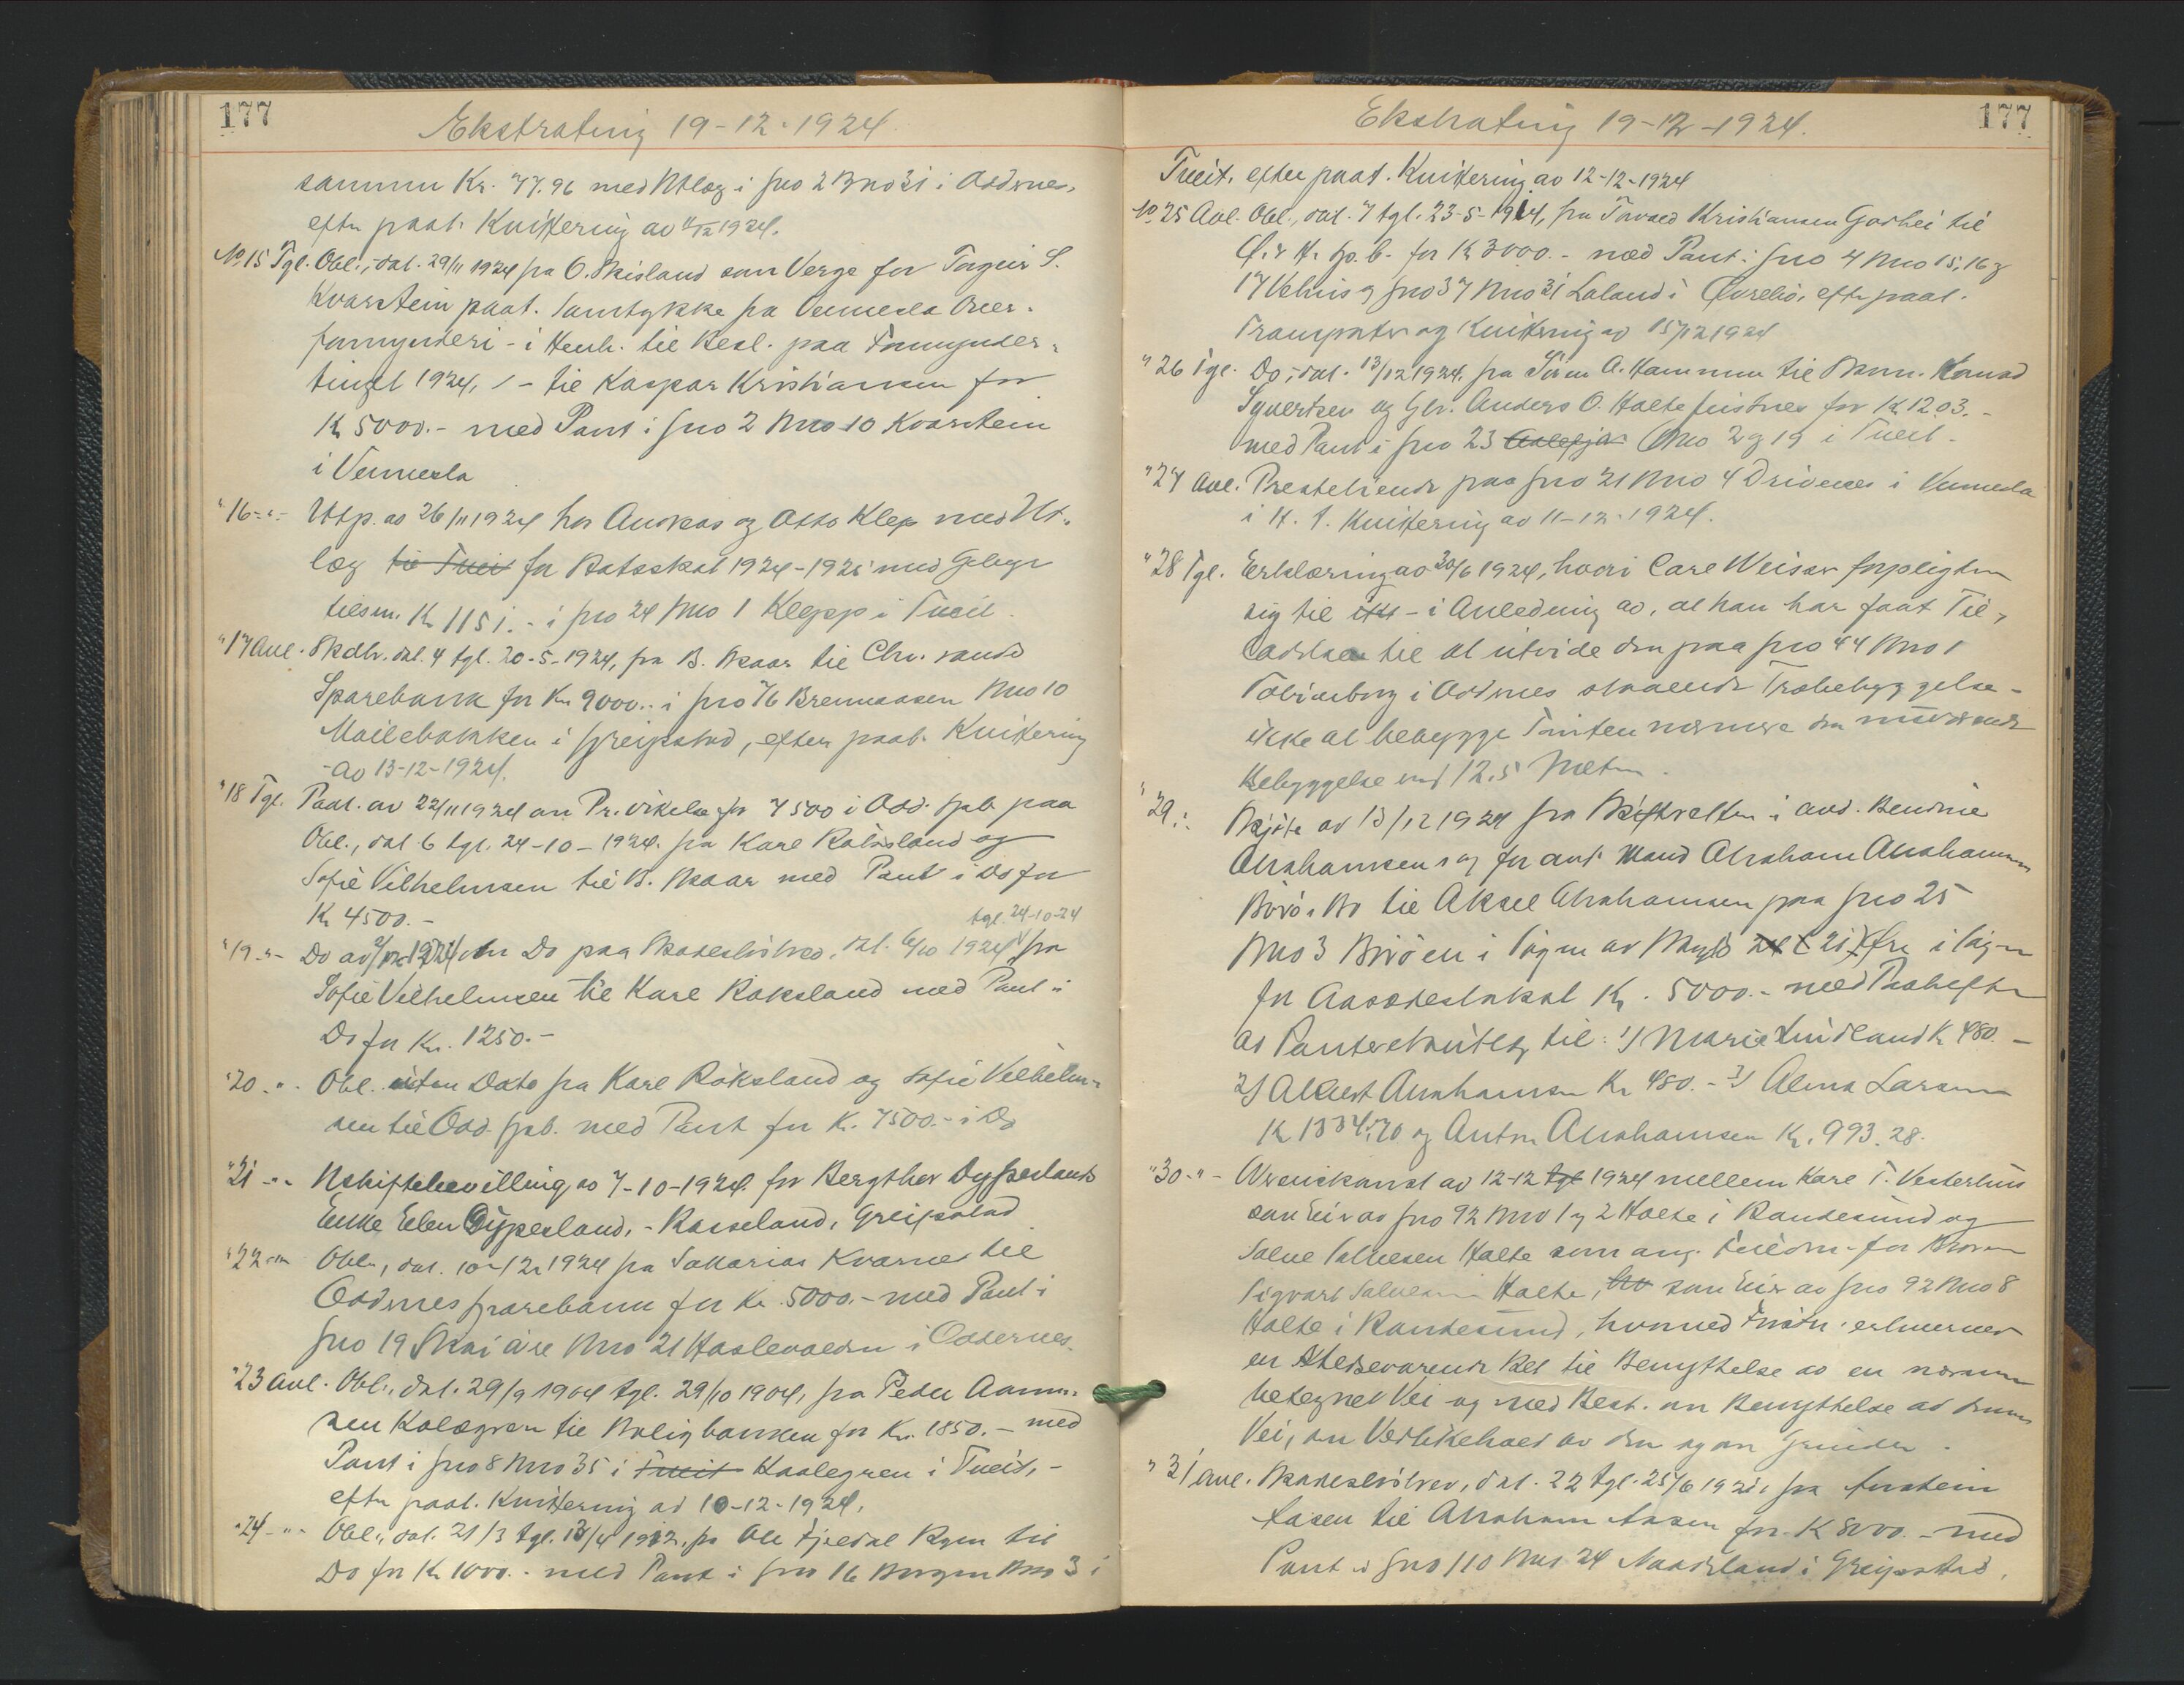 177
Ekstrating 19-12-1924.
sammen Kr. 77.96 med Utlæg i gno 2 Bno 31 i Oddernes,
efter paat. Kvittering av 11/12 1924.
No 15 Tgl. Obl., dat. 29/11 1924 fra O. Skisland som Verge for Torgeir S.
Kvarstein paat. Samtykke fra Vennesla Over-
formynderi - i Henh. til Besl. paa Formynder-
tinget 1924, - til Kaspar Kristiansen for
Kr 5000.- med Pant i gno 2 Bno 10 Kvarstein
i Vennesla
" 16 -"- Utp. av 26/11 1924 hos Andreas og Otto Klep med Ut-
læg til Tveit for Restskat 1924-1925 med Gebyr
tilsm. Kr 115 i gno 24 Bno 1 Klepp i Tveit.
" 17 Avl. Skdbr. dat. 4 tgl. 20-5-1924, fra B. Skaar til Chr.sands
Sparebank for Kr 9000.- i gno 76 Brennaasen Bno 10
Moilebakken i Greipstad, efter paat. Kvittering
av 13-12-1924.
" 18 Tgl. Paat. av 22/11 1924 om Pr. vikelse for 7500 i Odd. Spb. paa
Obl., dat. 6 tgl. 24-10-1924. fra Kare Roksland og
Sofie Vilhelmsen til B. Skaar med Pant i Do for
Kr 4500.-
tgl. 24-10-24
" 19 -"- Do av 1924 om Do paa Skadesløsbrev, dat. 6/10 1924 fra
Sofie Vilhelmsen til Kare Roksland med Pant i
Do for Kr. 1250.-
" 20 -"- Obl. uten Dato fra Kare Roksland og Sofie Vilhelm-
sen til Odd. Spb. med Pant for Kr. 7500.- i Do
" 21 -"- Uskiftebevilling av 7-10-1924. for Bergthor Dypeslands
Enke Elen Dypesland, - Rosseland, Greipstad
" 22 -"- Obl., dat. 10-12-1924 fra Sakarias Kvarnes til
Oddernes Sparebank for Kr. 5000.- med Pant i
gno 19 Bno 21 Haslevolden i Oddernes.
" 23 Avl. Obl., dat. 29/9 1904 tgl. 29/10 1904, fra Peder Aanon-
sen Kolægren til Boligbanken for Kr. 1850.- med
Pant i gno 8 Bno 35 i Tveit Haalegren i Tveit, -
efter paat. Kvittering av 10-12-1924.
" 24 -"- Obl., dat. 21/3 tgl. 13/4 1912, fra Ole Fjeldal Ryen til
Do for Kr 1000.- med Pant i gno 16 Bno 3 i
177
Ekstrating 19-12-1924.
Tveit, efter paat. Kvittering av 12-12-1924
No 25 Avl. Obl., dat. 7 tgl. 23-5-1914, fra Torvald Kristiansen Godhei til
Ø. & H. Sp. b. for Kr 3000.- med Pant i gno 4 Bno 15, 16 og
17 og gno 37 Bno 31 Laland i Øvrebø, efter paat.
Transporter og Kvittering av 15/12 1924
" 26 Tgl. Do, dat. 13/12 1924, fra Sören A. Hammen til Konrad
Syvertsen og Gbr. Anders O. Holte for Kr 1203.-
med Pant i gno 23 Bno 2 og 19 i Tveit.
" 27 Avl. Præsteliende paa gno 21 Bno 4 Drivenes i Vennesla
i H. t. Kvittering av 11-12-1924.
" 28 Tgl. Erklæring av 30/6 1924, hvori Carl Weisser forpligter
sig til - i Anledning av, at han har faat Til-
ladelse til at utvide den paa gno 44 Bno 1
Tobienborg i Oddernes staaende Træbebyggelse -
ikke at bebygge Tomten nærmere den nuværende
Bebyggelse end 12,5 Meter.
" 29 -"- Skjøte av 13/12 1924 fra Skifteretten i avd. Bendine
Abrahamsens og før avd. Mand Abraham Abrahamsen
Birø's Bo til Aksel Abrahamsen paa gno 25
Bno 3 Birøen i Søgne av Skyld 21 Øre i Søgne
for Aasædestakst Kr. 5000.- med Paaheftelse
av Panteret til: 1) Marie Lindland Kr 480.-
2) Albert Abrahamsen Kr 480.- 3) Alma Larsen
Kr 1334.70 og Anton Abrahamsen Kr. 993.28.
" 30 -"- Overenskomst av 12-12 tgl 1924 mellem Kare T. Vesterhus
som Eier av gno 92 Bno 1 og 2 Holte i Randesund og
Salve Salvesen Holte som ang. for Broren
Sigvart Salvesen Holte, som Eier av gno 92 Bno 8
Holte i Randesund, hvorved erhverver
en stedsevarende Ret til Benyttelse av en nærmere
betegnet Vei og med Best. om Benyttelse av denne
Vei, om Vedlikehold av den og om Grinder.
" 31 Avl. Skadesløsbrev, dat. 22 tgl. 25/6 1921, fra Torstein
Aasen til Abraham Aasen for Kr 8000.- med
Pant i gno 110 Bno 24 Naadeland i Greipstad,